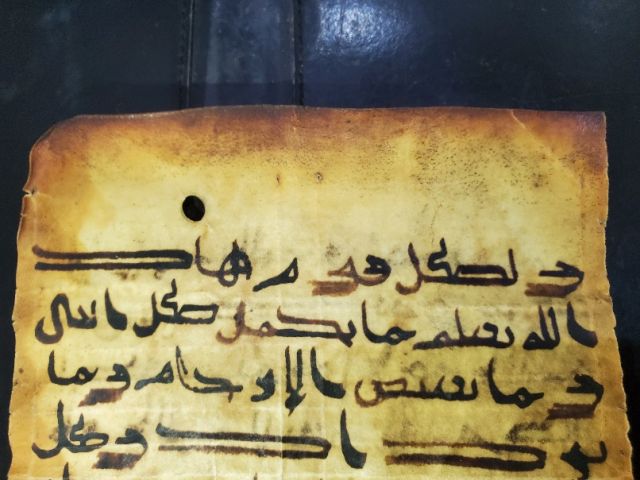 ولكل قوم هاد
الله يعلم ما تحمل كل انثى
وما تغيض الارحام وما
تزداد وكل